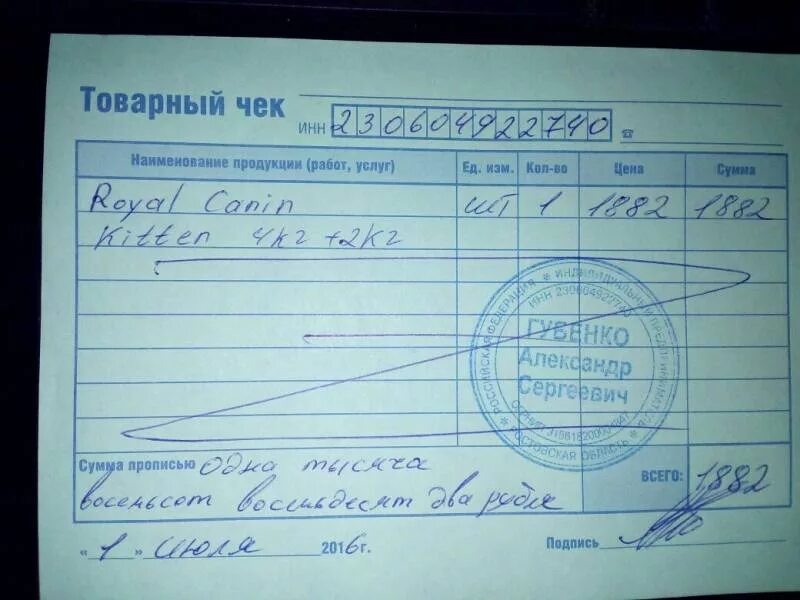 Товарный чек
ИНН 230604922740
Наименование продукции (работ, услуг) Ед. изм. Кол-во Цена Сумма
Royal Canin шт 1 1882 1882
Kitten 4кг +2кг
РОССИЙСКАЯ ФЕДЕРАЦИЯ * ИНДИВИДУАЛЬНЫЙ ПРЕДПРИНИМАТЕЛЬ * РОСТОВСКАЯ ОБЛАСТЬ
ИНН 230604922740
ГУБЕНКО
Александр
Сергеевич
Сумма прописью одна тысяча
восемьсот восемьдесят два рубля
ВСЕГО: 1882
« 1 » июля 2016г. Подпись